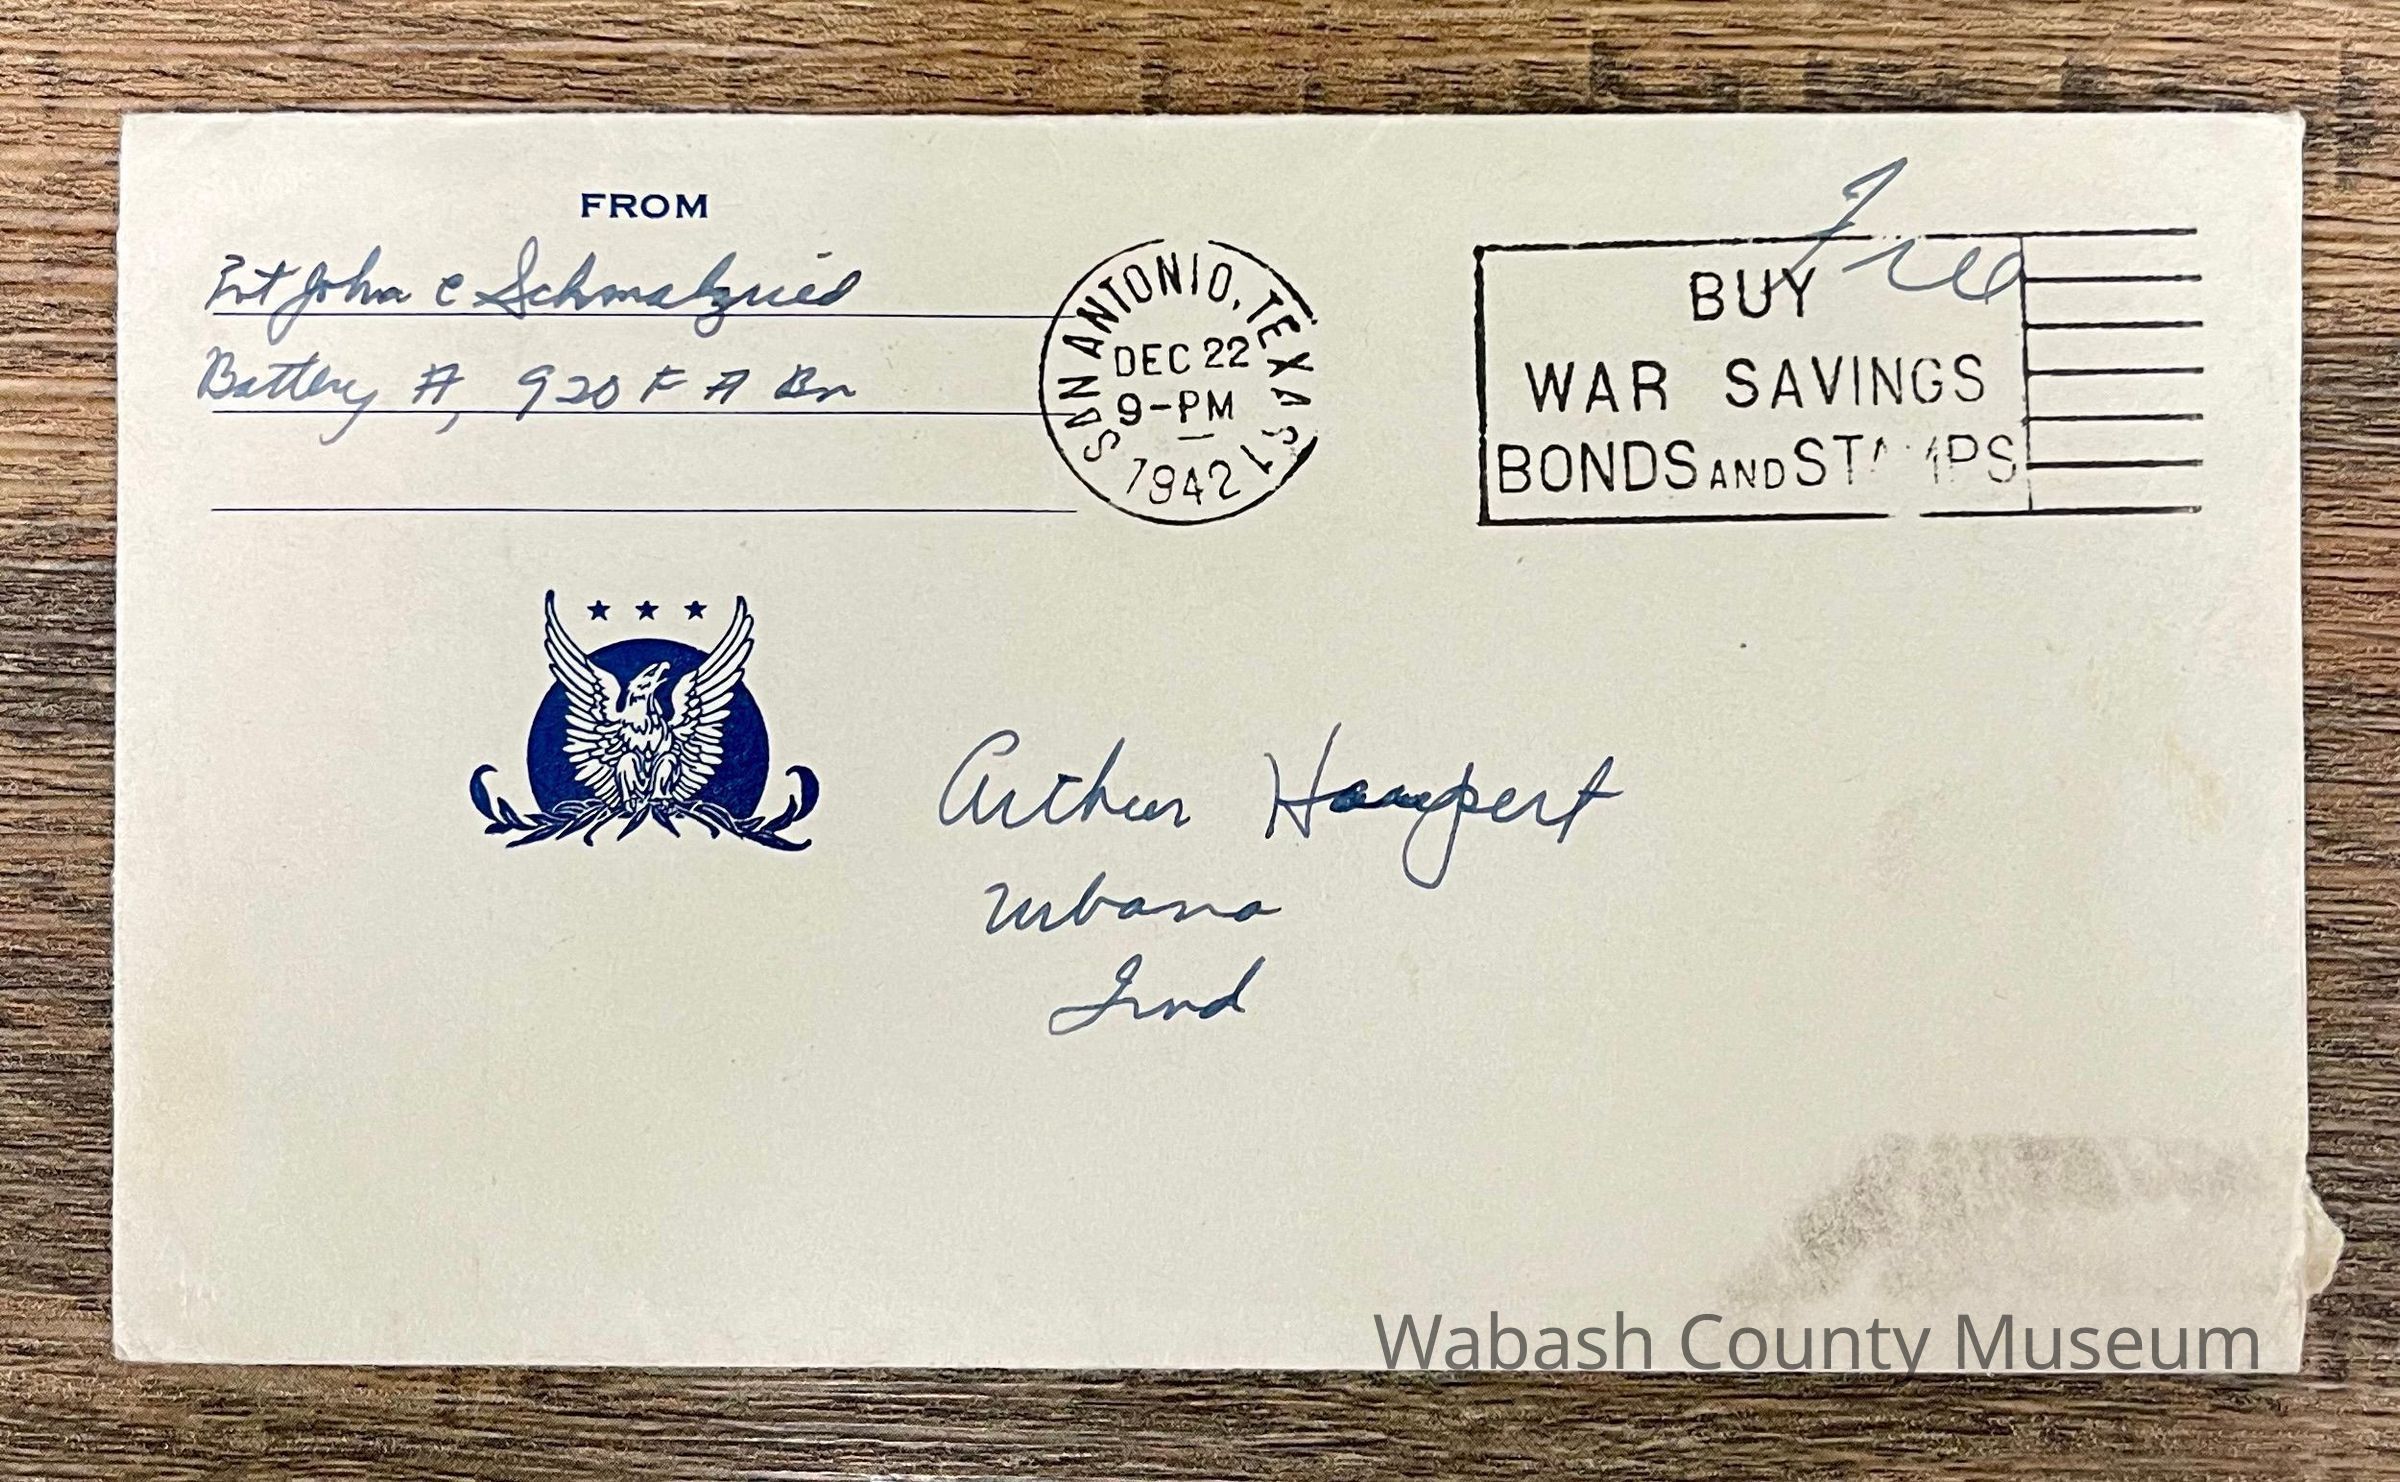 FROM
Pvt John C Schmalzried
Battery A, 920 F A Bn
SAN ANTONIO, TEXAS
DEC 22
9-PM
1942
1
Free
BUY
WAR SAVINGS
BONDS AND STAMPS
Arthur Haupert
Urbana
Ind
Wabash County Museum